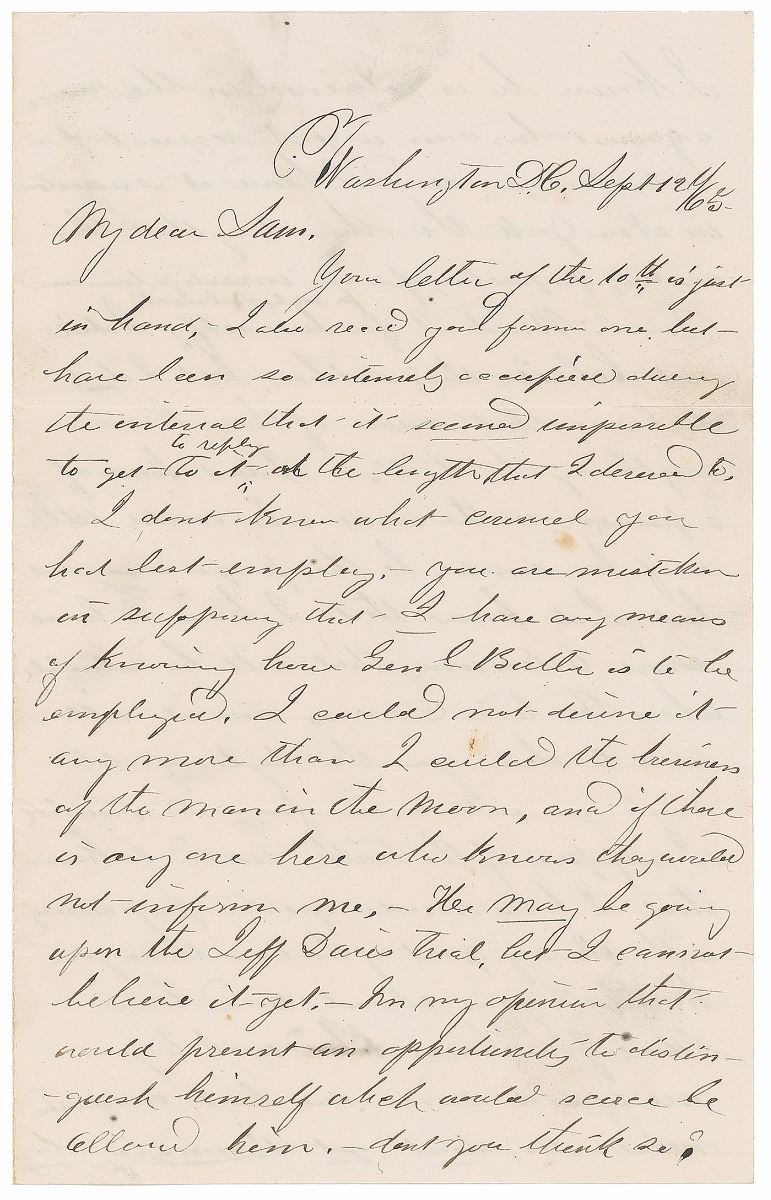 Washington D.C. Sept 12th/65
My dear Sam.
Your letter of the 10th is just
in hand, - I also recd your former one but
have been so intensely occupied during
the interval that it seemed impossible
to reply
to get to it at the length that I desired to.
I dont know what counsel you
had best employ. - you are mistaken
in supposing that I have any means
of knowing how Genl Butler is to be
employed. I could not divine it
any more than I could the business
of the man in the moon, and if there
is any one here who knows they would
not inform me, - He may be going
upon the Jeff Davis trial, but I cannot
believe it yet. - In my opinion that
would present an opportunity to distin-
-guish himself which would scarce be
allowed him. - dont you think so?